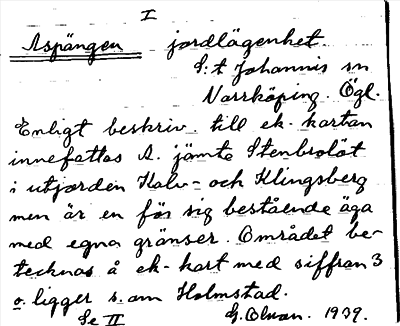 I
Aspängen jordlägenhet.
S:t Johannis sn
Norrköping. Ögl.
Enligt beskriv. till ek. kartan
innefattas A. jämte Stenbrolöt
i utjorden Halv- och Klingsberg
men är en för sig bestående äga
med egna gränser. Området be-
tecknas å ek-kart med siffran 3
o. ligger s. om Holmstad.
Se II G. Olvan. 1939.